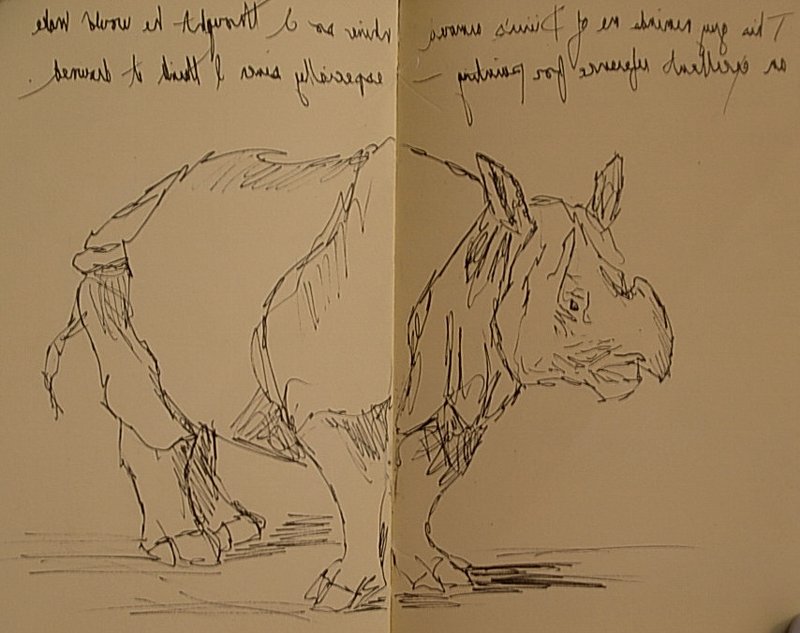 This guy reminds me of Dürer's famous rhino so I thought he would make
an excellent reference for painting – especially since I think it drowned.